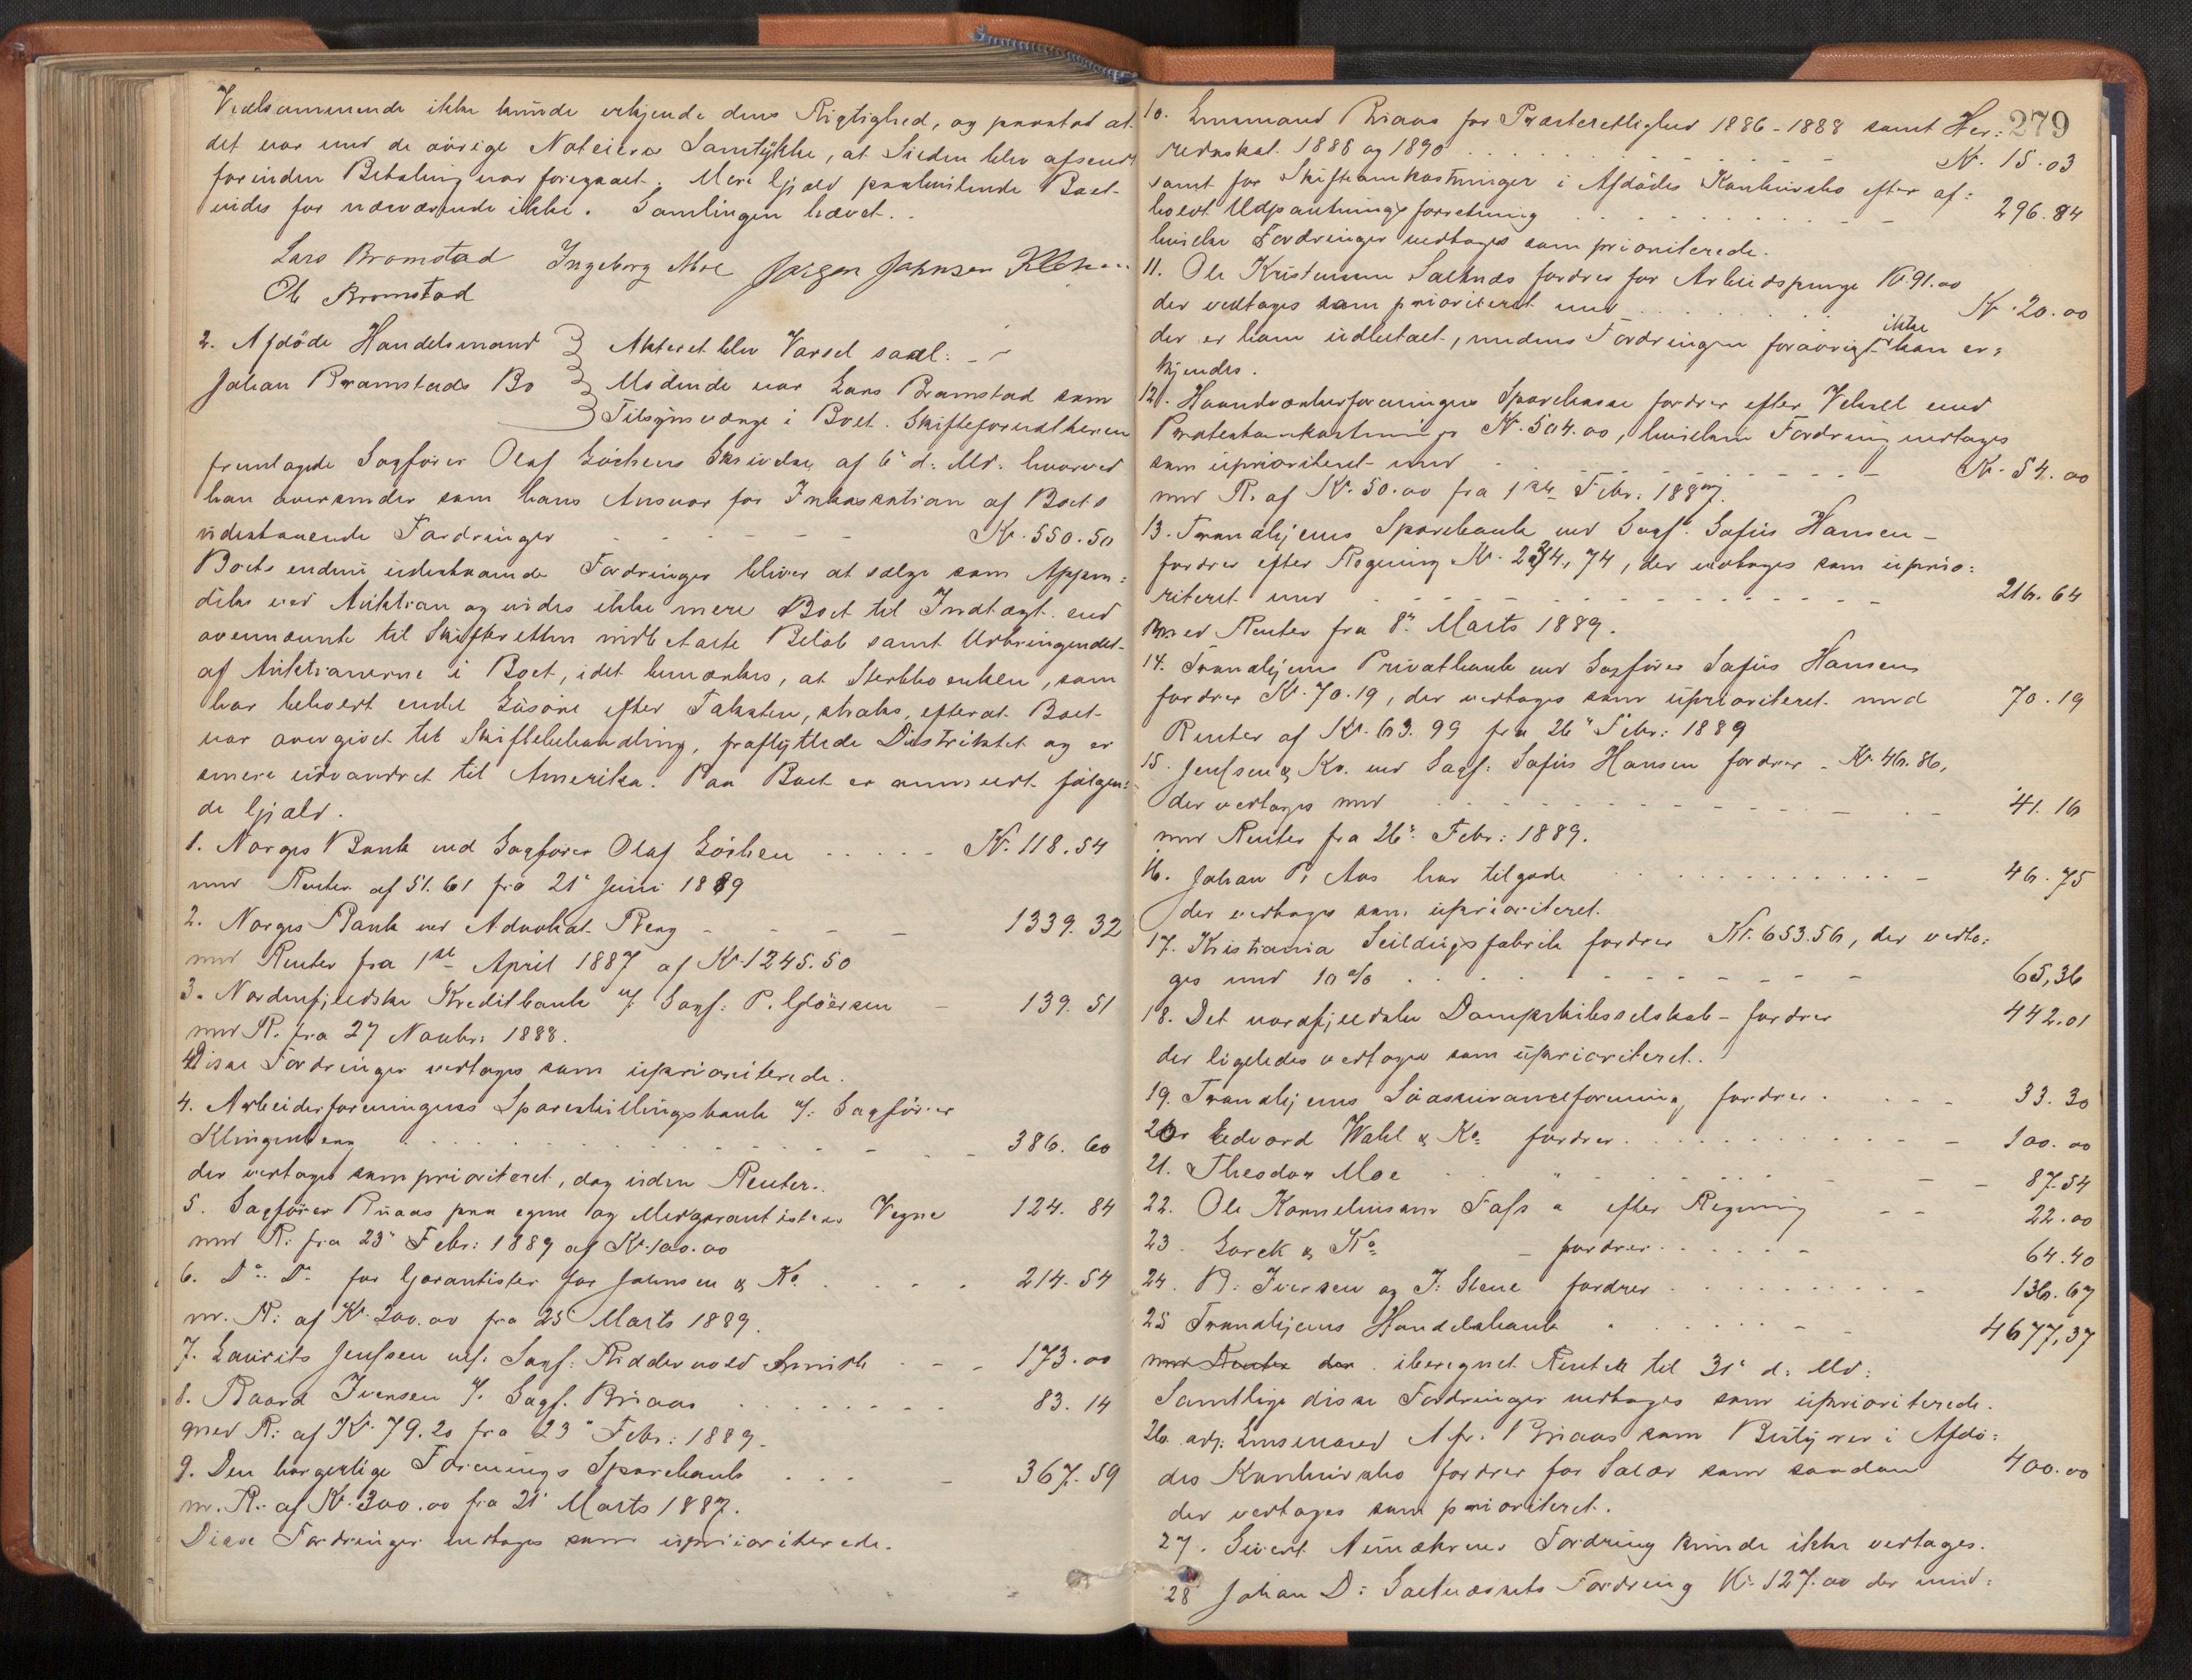 Vedkommende ikke kunde erkjende dens Rigtighed, og paastod at
det var med de övrige Noteieres Samtÿkke, at Silden blev afsendt
forinden Betaling var foregaaet. Mere Gjæld paahvilende Boet
vides for nærværende ikke. Samlingen hævet.
Lars Bromstad Ingeborg Moe Jørgen Johnsen
Ole Bromstad
2. Afdöde Handelsmand
Johan Bromstads Bo
Akteret blev Varsel saal:
Mödende var Lars Bromstad som
Tilsÿnsværge i Boet. Skifteforvalteren
fremlagde Sagförer Olaf Löchens Skrivelse af 6' d: Md. hvorved
han oversender som hans Ansvar for Inkassation af Boets
udestaaende Fordringer - - - - - Kr. 550.50
Boets endnu udestaaende Fordringer bliver at sælge som Appen:
diks ved Auktion og vides ikke mere Boet til Indtægt end
ovennævnte til Skifteretten indbetalte Belöb samt Udbringendet
af Auktionerne i Boet, idet bemærkes, at Sterkboenken, som
har beholdt endel Lösöre efter Taksten, straks efterat Boet
var overgivet til Skiftebehandling, fraflÿttede Distriktet og er
senere udvandret til Amerika. Paa Boet er anmeldt fölgen:
de Gjæld.
1. Norges Bank ved Sagförer Olaf Löchen - - - - Kr. 118.54
med Renter af 51.61 fra 21' Juni 1889
2. Norges Bank ved Advokat Berg - - - - 1339.32
med Renter fra 1ste April 1887 af Kr. 1245.50
3. Nordenfjeldske Kreditbank v/ Sagf: P. Glöersen - 139.51
med R. fra 27 Novbr: 1888.
Disse Fordringer vedtages som uprioriterede.
4. Arbeiderforeningens Spareskillingsbank v/: Sagförer
Klingenberg - - - - - 386.60
der vedtages som prioriteret, dog uden Renter.
5. Sagförer Bruaas paa egne og Medgarantisters Vegne 124.84
med R: fra 23' Febr: 1889 af Kr. 100.00
6. Do. Do. for Garantister for Johnsen & Ko. - - - 214.54
m. R: af Kr. 200.00 fra 25' Marts 1889.
7. Laurits Jenssen ved: Sagf: Riddervold Smith - - - 173.00
8. Baard Iversen v/. Sagf. Bruaas - - - - 83.14
med R: af Kr. 79.20 fra 23' Febr: 1889.
9. Den borgerlige Forenings Sparebank - - - - 367.59
m. R. af Kr. 300.00 fra 21' Marts 1887.
Disse Fordringer vedtages som uprioriterede.
279
10. Lensmand Bruaas for Præsterettighed 1886-1888 samt Her:
redsskat 1888 og 1890 - - - - Kr. 15.03
samt for Skifteomkostninger i Afdödes Konkursbo efter af:
holdt Udpantningsforretning - - - - 296.84
hvilke Fordringer vedtages som prioriterede.
11. Ole Kristensen Saltnæs fordrer for Arbeidspenge Kr. 91.00
der vedtages som prioriteret med - - - - Kr. 20.00
der er ham udbetalt, medens Fordringen forövrigt ikke kan er:
kjendes.
12. Haandværkerforeningens Sparekasse fordrer efter Veksel med
Protestomkostninger Kr. 504.00, hvilken Fordring vedtages
som uprioriteret med - - - - Kr. 54.00
med R. af Kr. 50.00 fra 1ste Febr: 1887.
13. Trondhjems Sparebank ved Sagf. Sofus Hansen -
fordrer efter Regning Kr. 224,74, der vedtages som uprio:
riteret med - - - - 216.64
med Renter fra 8' Marts 1889.
14. Trondhjems Privatbank ved Sagförer Sofus Hansen
fordrer Kr. 70.19, der vedtages som uprioriteret med 70.19
Renter af Kr. 63.99 fra 26' Febr: 1889
15. Jenssen & Ko. ved Sagf: Sofus Hansen fordrer - Kr. 46.86,
der vedtages med - - - - 41.16
med Renter fra 26' Febr: 1889.
16. Johan P. Aas har tilgode - - - - 46.75
der vedtages som uprioriteret.
17. Kristiania Seildugsfabrik fordrer Kr. 653.56, der vedta:
ges med 10 % - - - - 65,36
18. Det nordfjeldske Dampskibsselskab fordrer 442.01
der ligeledes vedtages som uprioriteret.
19. Trondhjems Söassuranceforening fordrer - - - 33.30
20. Edvard Wahl & Ko. fordrer - - - - 100.00
21. Theodor Moe " - - - - 87.54
22. Ole Kornelius Fass " efter Regning - - 22.00
23. Lorck & Ko. - fordrer - - - - 64.40
24. B: Iversen og J: Stene fordrer - - - - 136.67
25 Trondhjems Handelsbank " - - - - 4677,37
med Renter der iberegnet Renter til 31' d: Md:
Samtlige disse Fordringer vedtages som uprioriterede.
26. Lensmand A. fr. Bruaas som Bestÿrer i Afdö:
des Konkursbo fordrer for Salær som saadan 400.00
der vedtages som prioriteret.
27. Sivert Fordring kunde ikke vedtages.
28 Johan D: Saltnæssets Fordring Kr. 127.00 der med: